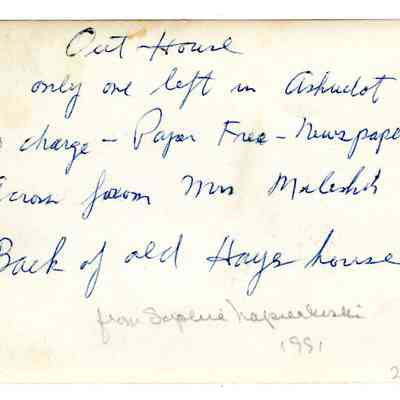 Out House
only one left in Ashudot
charge - Paper Free - Newspape
across from Mrs
Back of old Hays house
from Sophie Napierkoski
1991
2